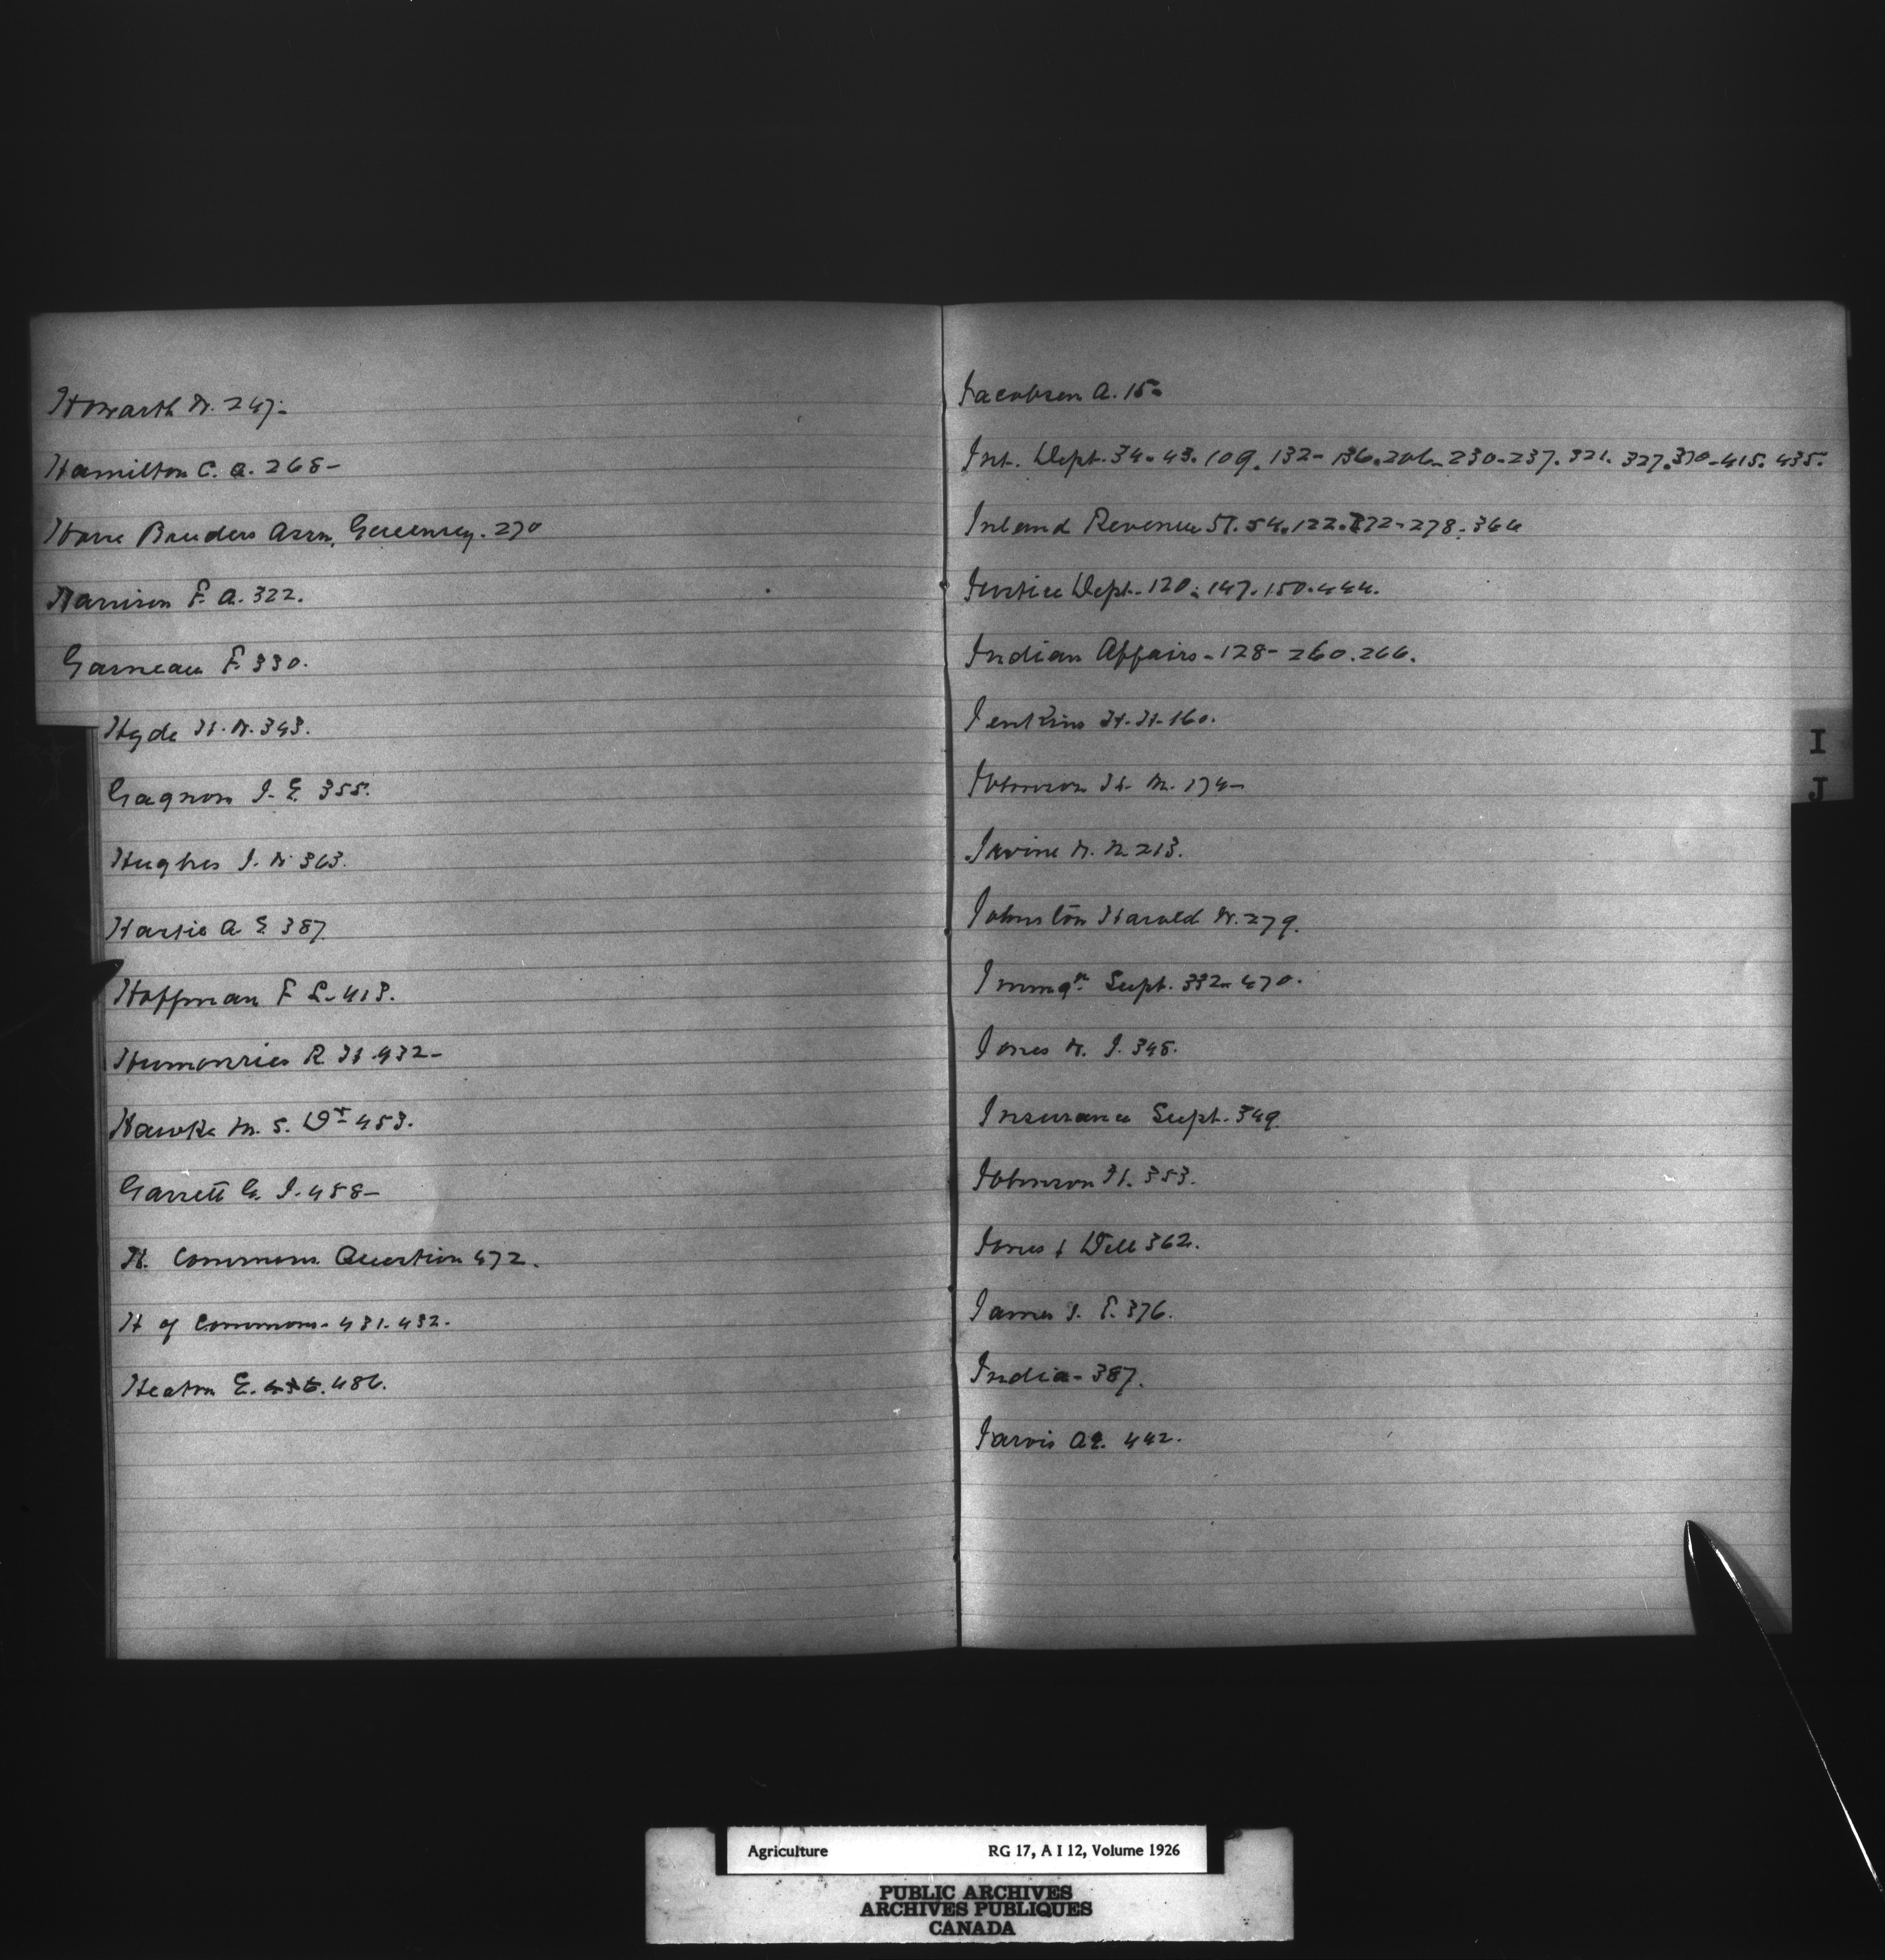 Howarth W. 247-
Hamilton C. A. 268-
Horse Breeders Assn, Guernsey. 270
Harrison F. A. 322.
Garneau F. 330.
Hyde H. W. 343.
Gagnon J. E. 355.
Hughes J. W. 363.
Hartie A E 387
Hoffman F L. 413.
R H. 432-
Hawke M. S. Dr 453.
Garrett G. J. 458-
H. Commons. Question 472.
H of Commons. 431. 432.
Heaton E. 486.
Jacobsen A. 15-
Int. Dept. 34. 43. 109. 132- 136. 206- 230- 237. 321. 327. 370- 415. 435.
Inland Revenue 51. 54. 122. 172- 278. 364
Justice Dept. 120. 147. 150. 444.
Indian Affairs- 128- 260. 266.
Jenkins H. H- 160.
Johnson H. M. 174-
Irvine W. M 213.
Johnston Harold W. 279.
Immgn. Supt. 332- 470.
Jones W. J. 348.
Insurance Supt. 349
Johnson H. 353.
Jones & Dell 362.
James J. F. 376.
India- 387.
Jarvis AE. 442.
I
J
Agriculture RG 17, A I 12, Volume 1926
PUBLIC ARCHIVES
ARCHIVES PUBLIQUES
CANADA